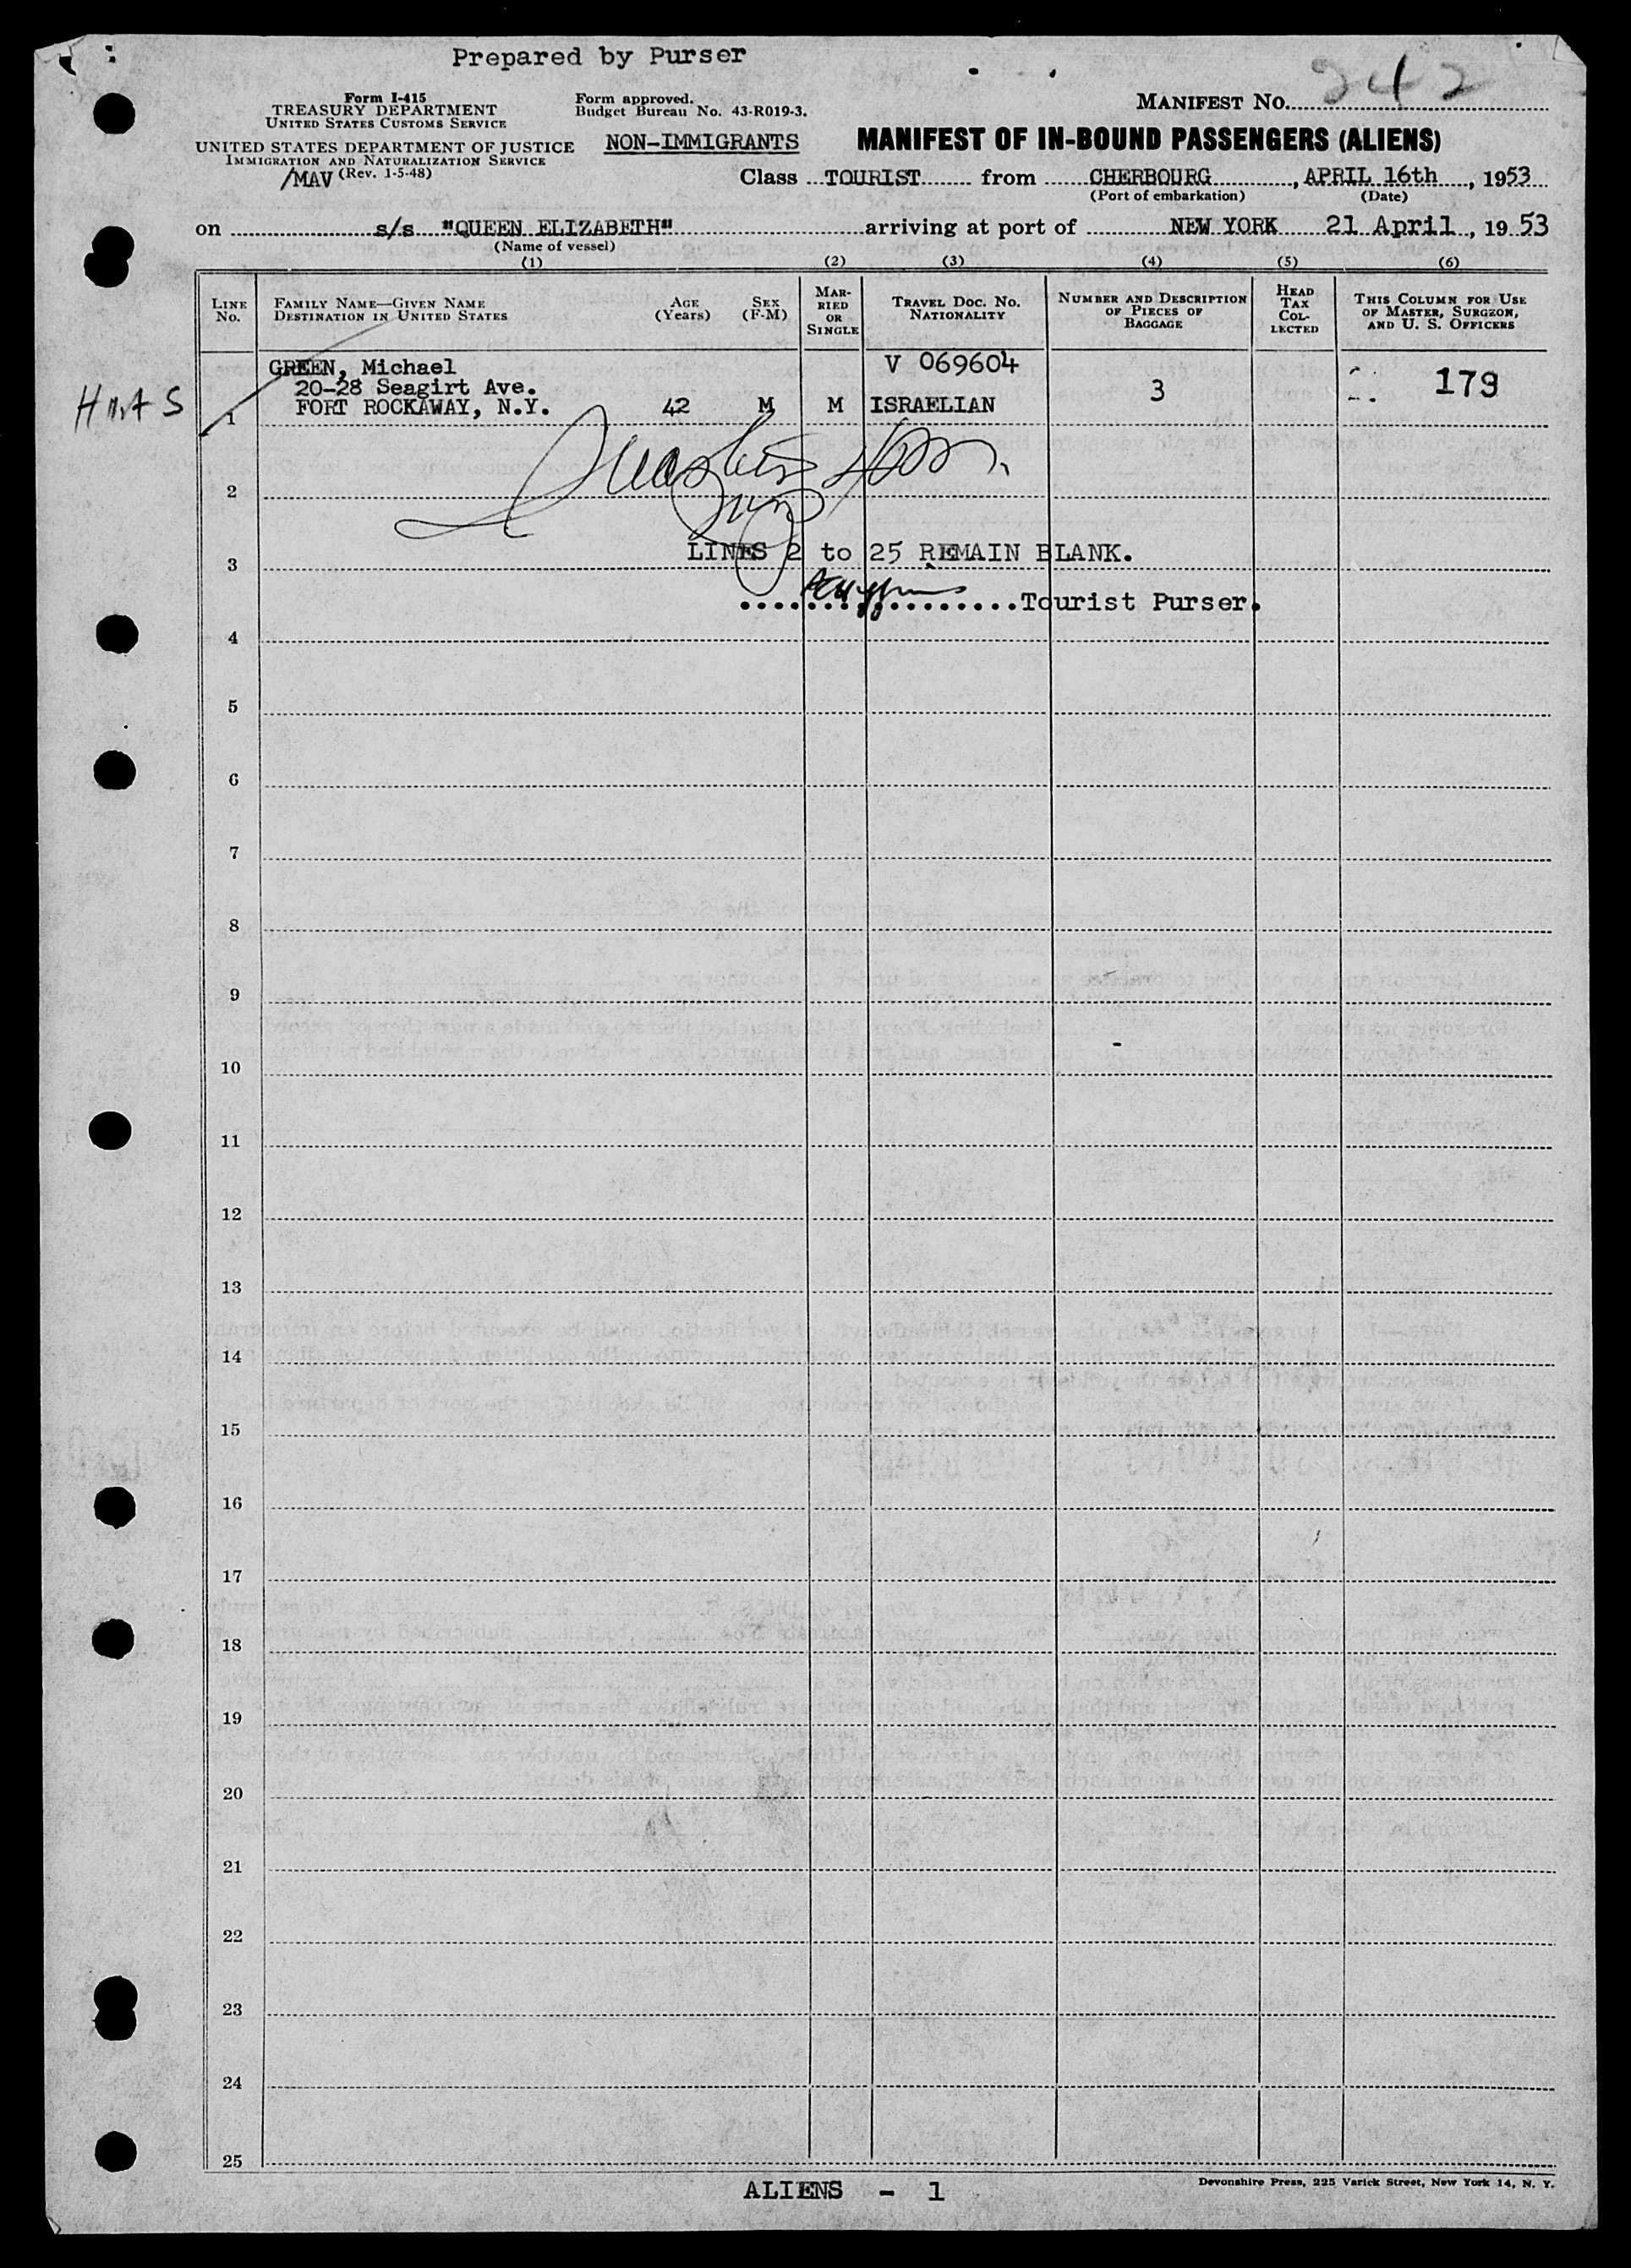 Prepared by Purser
242
Form I-415
TREASURY DEPARTMENT
UNITED STATES CUSTOMS SERVICE
UNITED STATES DEPARTMENT OF JUSTICE
IMMIGRATION AND NATURALIZATION SERVICE
/MAV (Rev. 1-5-48)
Form approved.
Budget Bureau No. 43-R019-3.
NON-IMMIGRANTS
MANIFEST NO.
MANIFEST OF IN-BOUND PASSENGERS (ALIENS)
Class TOURIST from CHERBOURG, APRIL 16th, 1953
(Port of embarkation) (Date)
on s/s "QUEEN ELIZABETH" arriving at port of NEW YORK 21 April, 1953
(Name of vessel)
(1) (2) (3) (4) (5) (6)
LINE No.
FAMILY NAME—GIVEN NAME
DESTINATION IN UNITED STATES
AGE (Years)
SEX (F-M)
MARRIED OR SINGLE
TRAVEL DOC. NO.
NATIONALITY
NUMBER AND DESCRIPTION OF PIECES OF BAGGAGE
HEAD TAX COLLECTED
THIS COLUMN FOR USE OF MASTER, SURGEON, AND U. S. OFFICERS
GREEN, Michael V 069604
20-28 Seagirt Ave. 3 179
1 FORT ROCKAWAY, N.Y. 42 M M ISRAELIAN
2
LINES 2 to 25 REMAIN BLANK.
3
Tourist Purser.
4
5
6
7
8
9
10
11
12
13
14
15
16
17
18
19
20
21
22
23
24
25
ALIENS - 1
Devonshire Press, 225 Varick Street, New York 14, N. Y.